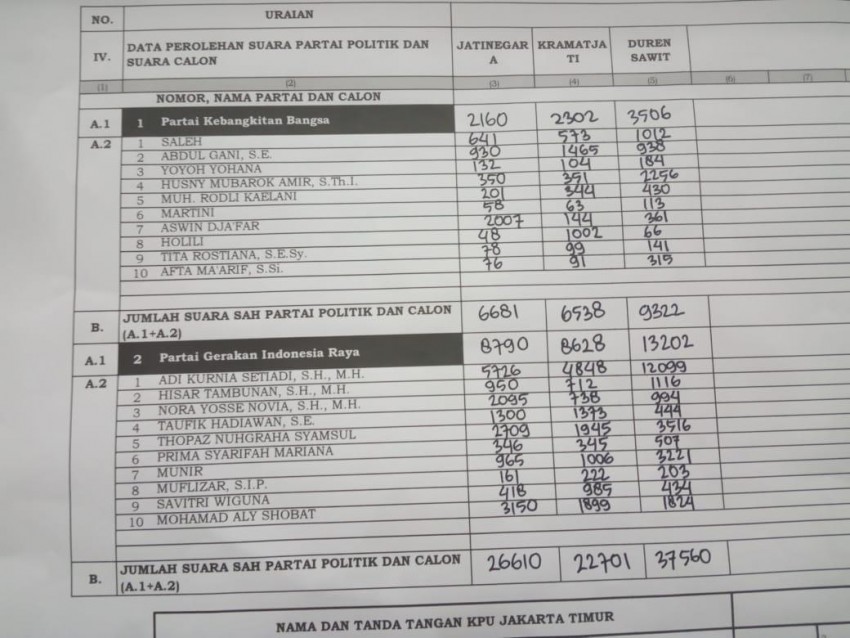 NO. URAIAN
IV. DATA PEROLEHAN SUARA PARTAI POLITIK DAN SUARA CALON JATINEGARA KRAMATJATI DUREN SAWIT
(1) (2) (3) (4) (5) (6) (7)
NOMOR, NAMA PARTAI DAN CALON
A.1 1 Partai Kebangkitan Bangsa 2160 2302 3506
A.2 1 SALEH 641 573 1012
2 ABDUL GANI, S.E. 930 1465 938
3 YOYOH YOHANA 132 104 184
4 HUSNY MUBAROK AMIR, S.Th.I. 350 351 2256
5 MUH. RODLI KAELANI 201 344 430
6 MARTINI 58 63 113
7 ASWIN DJA'FAR 2007 144 361
8 HOLILI 48 1002 66
9 TITA ROSTIANA, S.E.Sy. 78 99 141
10 AFTA MA'ARIF, S.Si. 76 91 315
B. JUMLAH SUARA SAH PARTAI POLITIK DAN CALON (A.1+A.2) 6681 6538 9322
A.1 2 Partai Gerakan Indonesia Raya 8790 8628 13202
A.2 1 ADI KURNIA SETIADI, S.H., M.H. 5726 4848 12099
2 HISAR TAMBUNAN, S.H., M.H. 950 712 1116
3 NORA YOSSE NOVIA, S.H., M.H. 2095 738 994
4 TAUFIK HADIAWAN, S.E. 1300 1373 444
5 THOPAZ NUHGRAHA SYAMSUL 2709 1945 3516
6 PRIMA SYARIFAH MARIANA 346 345 507
7 MUNIR 965 1006 3221
8 MUFLIZAR, S.I.P. 161 222 203
9 SAVITRI WIGUNA 418 985 434
10 MOHAMAD ALY SHOBAT 3150 1899 1824
B. JUMLAH SUARA SAH PARTAI POLITIK DAN CALON (A.1+A.2) 26610 22701 37560
NAMA DAN TANDA TANGAN KPU JAKARTA TIMUR